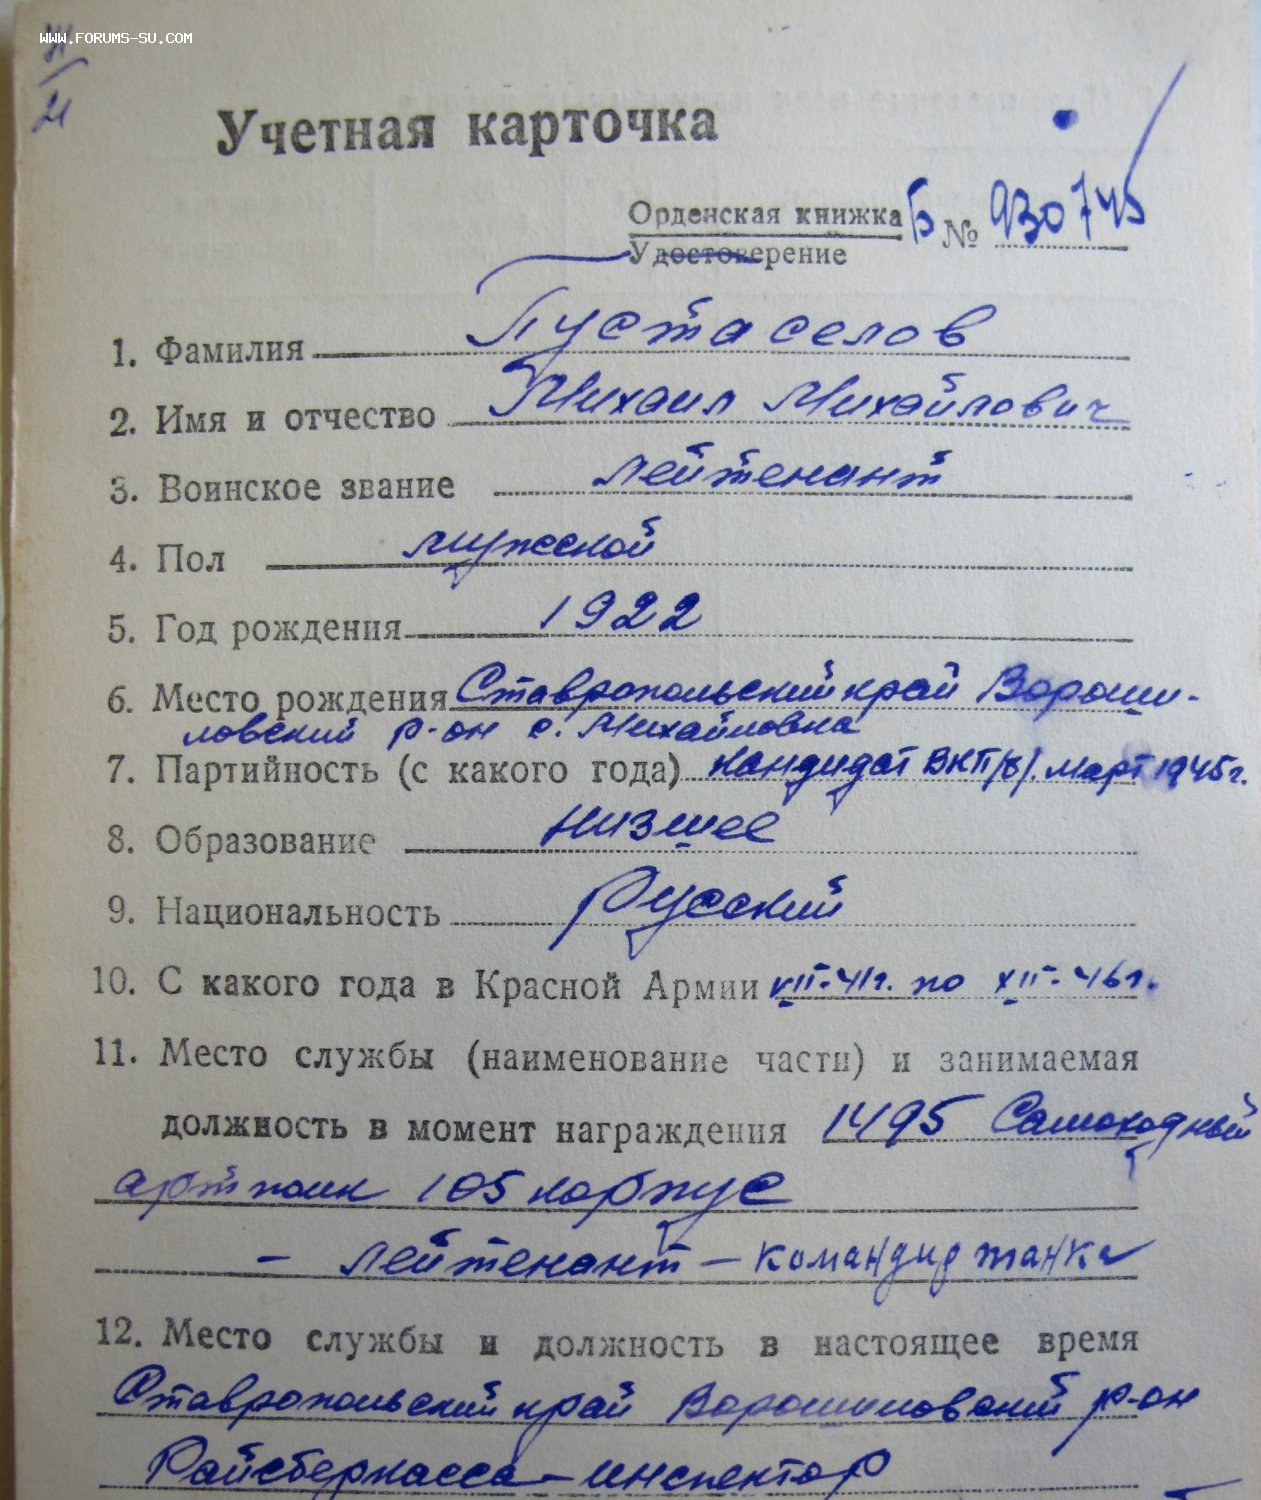 WWW.FORUMS-SU.COM
Учетная карточка
Орденская книжка Б № 930745
Удостоверение
1. Фамилия Пустаселов
2. Имя и отчество Михаил Михайлович
3. Воинское звание лейтенант
4. Пол мужской
5. Год рождения 1922
6. Место рождения Ставропольский край Вороши-
ловский р-он с. Михайловка
7. Партийность (с какого года) Кандидат ВКП/б/. март 1945г.
8. Образование низшее
9. Национальность Русский
10. С какого года в Красной Армии VII-41г. по XII-46г.
11. Место службы (наименование части) и занимаемая
должность в момент награждения 1495 Самоходный
артполк 105 корпус
- лейтенант - командир танка
12. Место службы и должность в настоящее время
Ставропольский край Ворошиловский р-он
Райсберкасса - инспектор